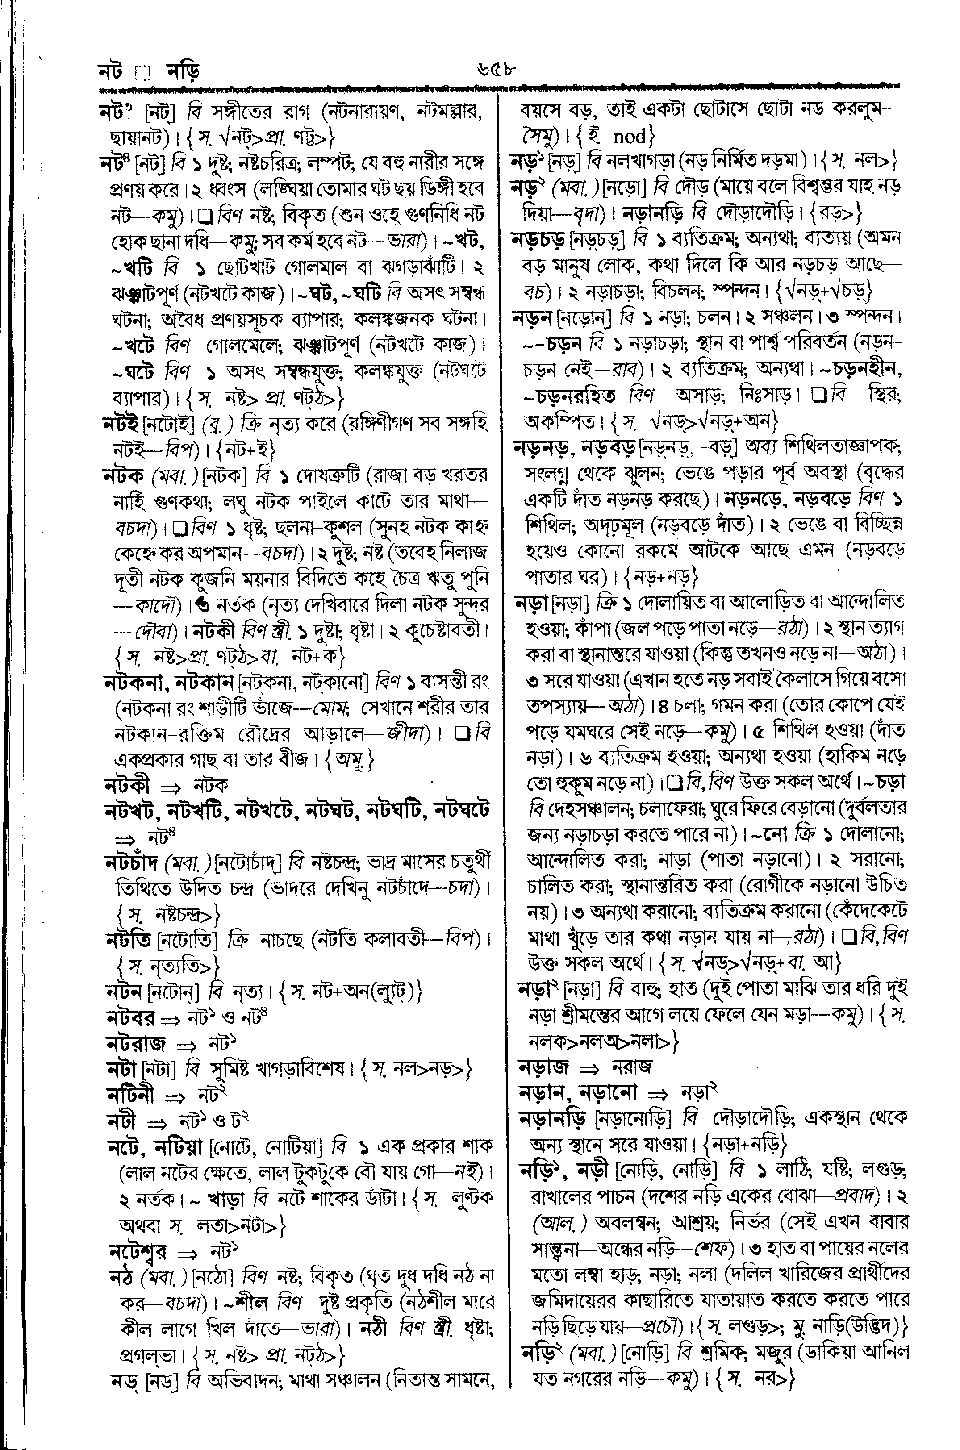 নট □ নড়ি
৬৫৮
নট³ [নট্] বি সঙ্গীতের রাগ (নটনারায়ণ, নটমল্লার,
ছায়ানট)। {স. √নট্>প্রা. ণট্ট>}
নট⁴ [নট] বি ১ দুষ্ট; নষ্টচরিত্র; লম্পট; যে বহু নারীর সঙ্গে
প্রণয় করে। ২ ধ্বংস (লঙ্ঘিয়া তোমার ঘট ছয় ডিঙ্গী হবে
নট—কমু)। ❑ বিণ নষ্ট; বিকৃত (শুন ওহে গুণনিধি নট
হোক ছানা দধি—কমু; সব কর্ম হবে নট—ভারা)। ~খট,
~খটি বি ১ ছোটখাট গোলমাল বা ঝগড়াঝাঁটি। ২
ঝঞ্ঝাটপূর্ণ (নটখটে কাজ)। ~ঘট, ~ঘটি বি অসৎ সম্বন্ধ
ঘটনা; অবৈধ প্রণয়সূচক ব্যাপার; কলঙ্কজনক ঘটনা।
~খটে বিণ গোলমেলে; ঝঞ্ঝাটপূর্ণ (নটখটে কাজ)।
~ঘটে বিণ ১ অসৎ সম্বন্ধযুক্ত; কলঙ্কযুক্ত (নটঘটে
ব্যাপার)। {স. নষ্ট> প্রা. ণট্‌ঠ>}
নটই [নটোই] (ব্র.) ক্রি নৃত্য করে (রঙ্গিণীগণ সব সঙ্গহি
নটই—বিপ)। {নট+ই}
নটক (মবা.) [নটক] বি ১ দোষত্রুটি (রাজা বড় খরতর
নাহি গুণকথা; লঘু নটক পাইলে কাটে তার মাথা—
বচদা)। ❑ বিণ ১ ধৃষ্ট; ছলনা-কুশল (সুনহ নটক কাহ্ন
কেহ্নে কর অপমান--বচদা)। ২ দুষ্ট; নষ্ট (তবেহ নিলাজ
দূতী নটক কূজনি ময়নার বিদিতে কহে চৈত্র ঋতু পুনি
—কাদৌ)। ৩ নর্তক (নৃত্য দেখিবারে দিলা নটক সুন্দর
—দৌবা)। নটকী বিণ স্ত্রী. ১ দুষ্টা; ধৃষ্টা। ২ কুচেষ্টাবতী।
{স. নষ্ট>প্রা. ণট্‌ঠ>বা. নট+ক}
নটকনা, নটকান [নটকনা, নট্‌কানো] বিণ ১ বাসন্তী রং
(নটকনা রং শাড়ীটি ভাঁজে—মোম; সেখানে শরীর তার
নটকান-রক্তিম রৌদ্রের আড়ালে—জীদা)। ❑ বি
একপ্রকার গাছ বা তার বীজ। {অমূ}
নটকী ⇒ নটক
নটখট, নটখটি, নটখটে, নটঘট, নটঘটি, নটঘটে
⇒ নট⁴
নটচাঁদ (মবা.) [নটোচাঁদ] বি নষ্টচন্দ্র; ভাদ্র মাসের চতুর্থী
তিথিতে উদিত চন্দ্র (ভাদরে দেখিনু নটচাঁদে—চদা)।
{স. নষ্টচন্দ্র>}
নটতি [নটোতি] ক্রি নাচছে (নটতি কলাবতী—বিপ)।
{স. নৃত্যতি>}
নটন [নটোন্] বি নৃত্য। {স. নট+অন(ল্যুট)}
নটবর ⇒ নট¹ ও নট⁴
নটরাজ ⇒ নট¹
নটা [নটা] বি সুমিষ্ট খাগড়াবিশেষ। {স. নল>নড়>}
নটিনী ⇒ নট²
নটী ⇒ নট¹ ও ট²
নটে, নটিয়া [নোটে, নোটিয়া] বি ১ এক প্রকার শাক
(লাল নটের ক্ষেতে, লাল টুকটুকে বৌ যায় গো—নই)।
২ নর্তক। ~ খাড়া বি নটে শাকের ডাঁটা। {স. লুণ্টক
অথবা স. লতা>নটা>}
নটেশ্বর ⇒ নট¹
নঠ (মবা.) [নঠো] বিণ নষ্ট; বিকৃত (ঘৃত দুধ দধি নঠ না
কর—বচদা)। ~শীল বিণ দুষ্ট প্রকৃতি (নঠশীল মারে
কীল লাগে খিল দাঁতে—ভারা)। নঠী বিণ স্ত্রী. ধৃষ্টা;
প্রগল্‌ভা। {স. নষ্ট> প্রা. নট্‌ঠ>}
নড্ [নড্] বি অভিবাদন; মাথা সঞ্চালন (নিতান্ত সামনে,
বয়সে বড়, তাই একটা ছোটাসে ছোটা নড করলুম--
সৈমু)। {ই. nod}
নড়¹ [নড়্] বি নলখাগড়া (নড় নির্মিত দড়মা)। {স. নল>}
নড়² (মবা.) [নড়ো] বি দৌড় (মায়ে বলে বিশ্বম্ভর যাহ নড়
দিয়া—বৃদা)। নড়ানড়ি বি দৌড়াদৌড়ি। {রড়>}
নড়চড় [নড়্‌চড়্] বি ১ ব্যতিক্রম; অন্যথা; ব্যত্যয় (শ্রমন
বড় মানুষ লোক, কথা দিলে কি আর নড়চড় আছে—
বচ)। ২ নড়াচড়া; বিচলন; স্পন্দন। {√নড়্+√চড়্}
নড়ন [নড়োন্] বি ১ নড়া; চলন। ২ সঞ্চলন। ৩ স্পন্দন।
~-চড়ন বি ১ নড়াচড়া; স্থান বা পার্শ্ব পরিবর্তন (নড়ন-
চড়ন নেই—রাব)। ২ ব্যতিক্রম; অন্যথা। ~চড়নহীন,
~চড়নরহিত বিণ অসাড়; নিঃসাড়। ❑ বি স্থির;
অকম্পিত। {স. √নড্>√নড়্+অন}
নড়নড়, নড়বড় [নড়্‌নড়্, -বড়্] অব্য শিথিলতাজ্ঞাপক;
সংলগ্ন থেকে ঝুলন; ভেঙে পড়ার পূর্ব অবস্থা (বৃদ্ধের
একটি দাঁত নড়নড় করছে)। নড়নড়ে, নড়বড়ে বিণ ১
শিথিল; অদৃঢ়মূল (নড়বড়ে দাঁত)। ২ ভেঙে বা বিচ্ছিন্ন
হয়েও কোনো রকমে আটকে আছে এমন (নড়বড়ে
পাতার ঘর)। {নড়+নড়}
নড়া [নড়া] ক্রি ১ দোলায়িত বা আলোড়িত বা আন্দোলিত
হওয়া; কাঁপা (জল পড়ে পাতা নড়ে—রঠা)। ২ স্থান ত্যাগ
করা বা স্থানান্তরে যাওয়া (কিন্তু তখনও নড়ে না—অঠা)।
৩ সরে যাওয়া (এখান হতে নড় সবাই কৈলাসে গিয়ে বসো
তপস্যায়—অঠা)। ৪ চলা; গমন করা (তোর কোপে যেই
পড়ে যমঘরে সেই নড়ে—কমু)। ৫ শিথিল হওয়া (দাঁত
নড়া)। ৬ ব্যতিক্রম হওয়া; অন্যথা হওয়া (হাকিম নড়ে
তো হুকুম নড়ে না)। ❑ বি, বিণ উক্ত সকল অর্থে। ~চড়া
বি দেহসঞ্চালন; চলাফেরা; ঘুরে ফিরে বেড়ানো (দুর্বলতার
জন্য নড়াচড়া করতে পারে না)। ~নো ক্রি ১ দোলানো;
আন্দোলিত করা; নাড়া (পাতা নড়ানো)। ২ সরানো;
চালিত করা; স্থানান্তরিত করা (রোগীকে নড়ানো উচিত
নয়)। ৩ অন্যথা করানো; ব্যতিক্রম করানো (কেঁদেকেটে
মাথা খুঁড়ে তার কথা নড়ান যায় না—রঠা)। ❑ বি, বিণ
উক্ত সকল অর্থে। {স. √নড্>√নড়্+বা. আ}
নড়া² [নড়া] বি বাহু; হাত (দুই পোতা মাঝি তার ধরি দুই
নড়া শ্রীমন্তের আগে লয়ে ফেলে যেন মড়া—কমু)। {স.
নলক>নলঅ>নলা>}
নড়াজ ⇒ নরাজ
নড়ান, নড়ানো ⇒ নড়া²
নড়ানড়ি [নড়ানোড়ি] বি দৌড়াদৌড়ি; একস্থান থেকে
অন্য স্থানে সরে যাওয়া। {নড়া+নড়ি}
নড়ি¹, নড়ী [নোড়ি, নোড়ি] বি ১ লাঠি; যষ্টি; লগুড়;
রাখালের পাচন (দশের নড়ি একের বোঝা—প্রবাদ)। ২
(আল.) অবলম্বন; আশ্রয়; নির্ভর (সেই এখন বাবার
সান্ত্বনা—অন্ধের নড়ি—শেফ)। ৩ হাত বা পায়ের নলের
মতো লম্বা হাড়; নড়া; নলা (দলিল খারিজের প্রার্থীদের
জমিদায়েরর কাছারিতে যাতায়াত করতে করতে পারে
নড়ি ছিঁড়ে যায়—প্রচৌ)। {স. লগুড়>; মু. নাড়ি(উদ্ভিদ)}
নড়ি² (মবা.) [নোড়ি] বি শ্রমিক; মজুর (ডাকিয়া আনিল
যত নগরের নড়ি—কমু)। {স. নর>}